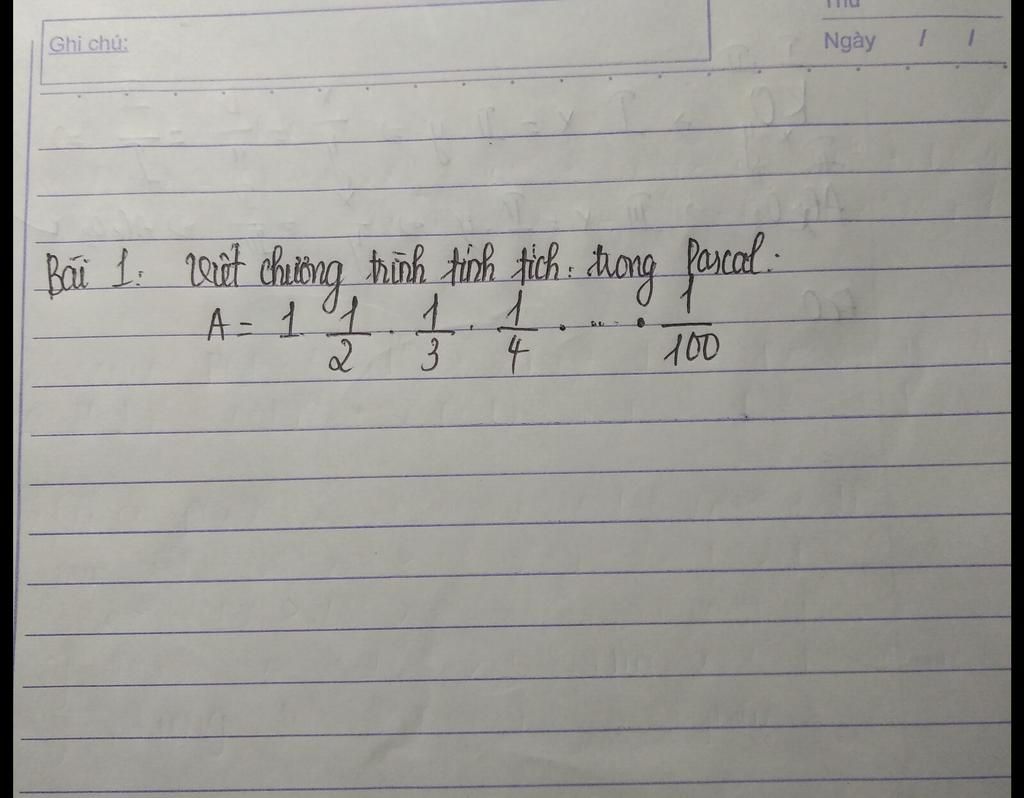 Thứ
Ghi chú:
Ngày / /
Bài 1: Viết chương trình tính tích: trong Pascal:
A = 1 1/2 . 1/3 . 1/4 . ... . 1/100